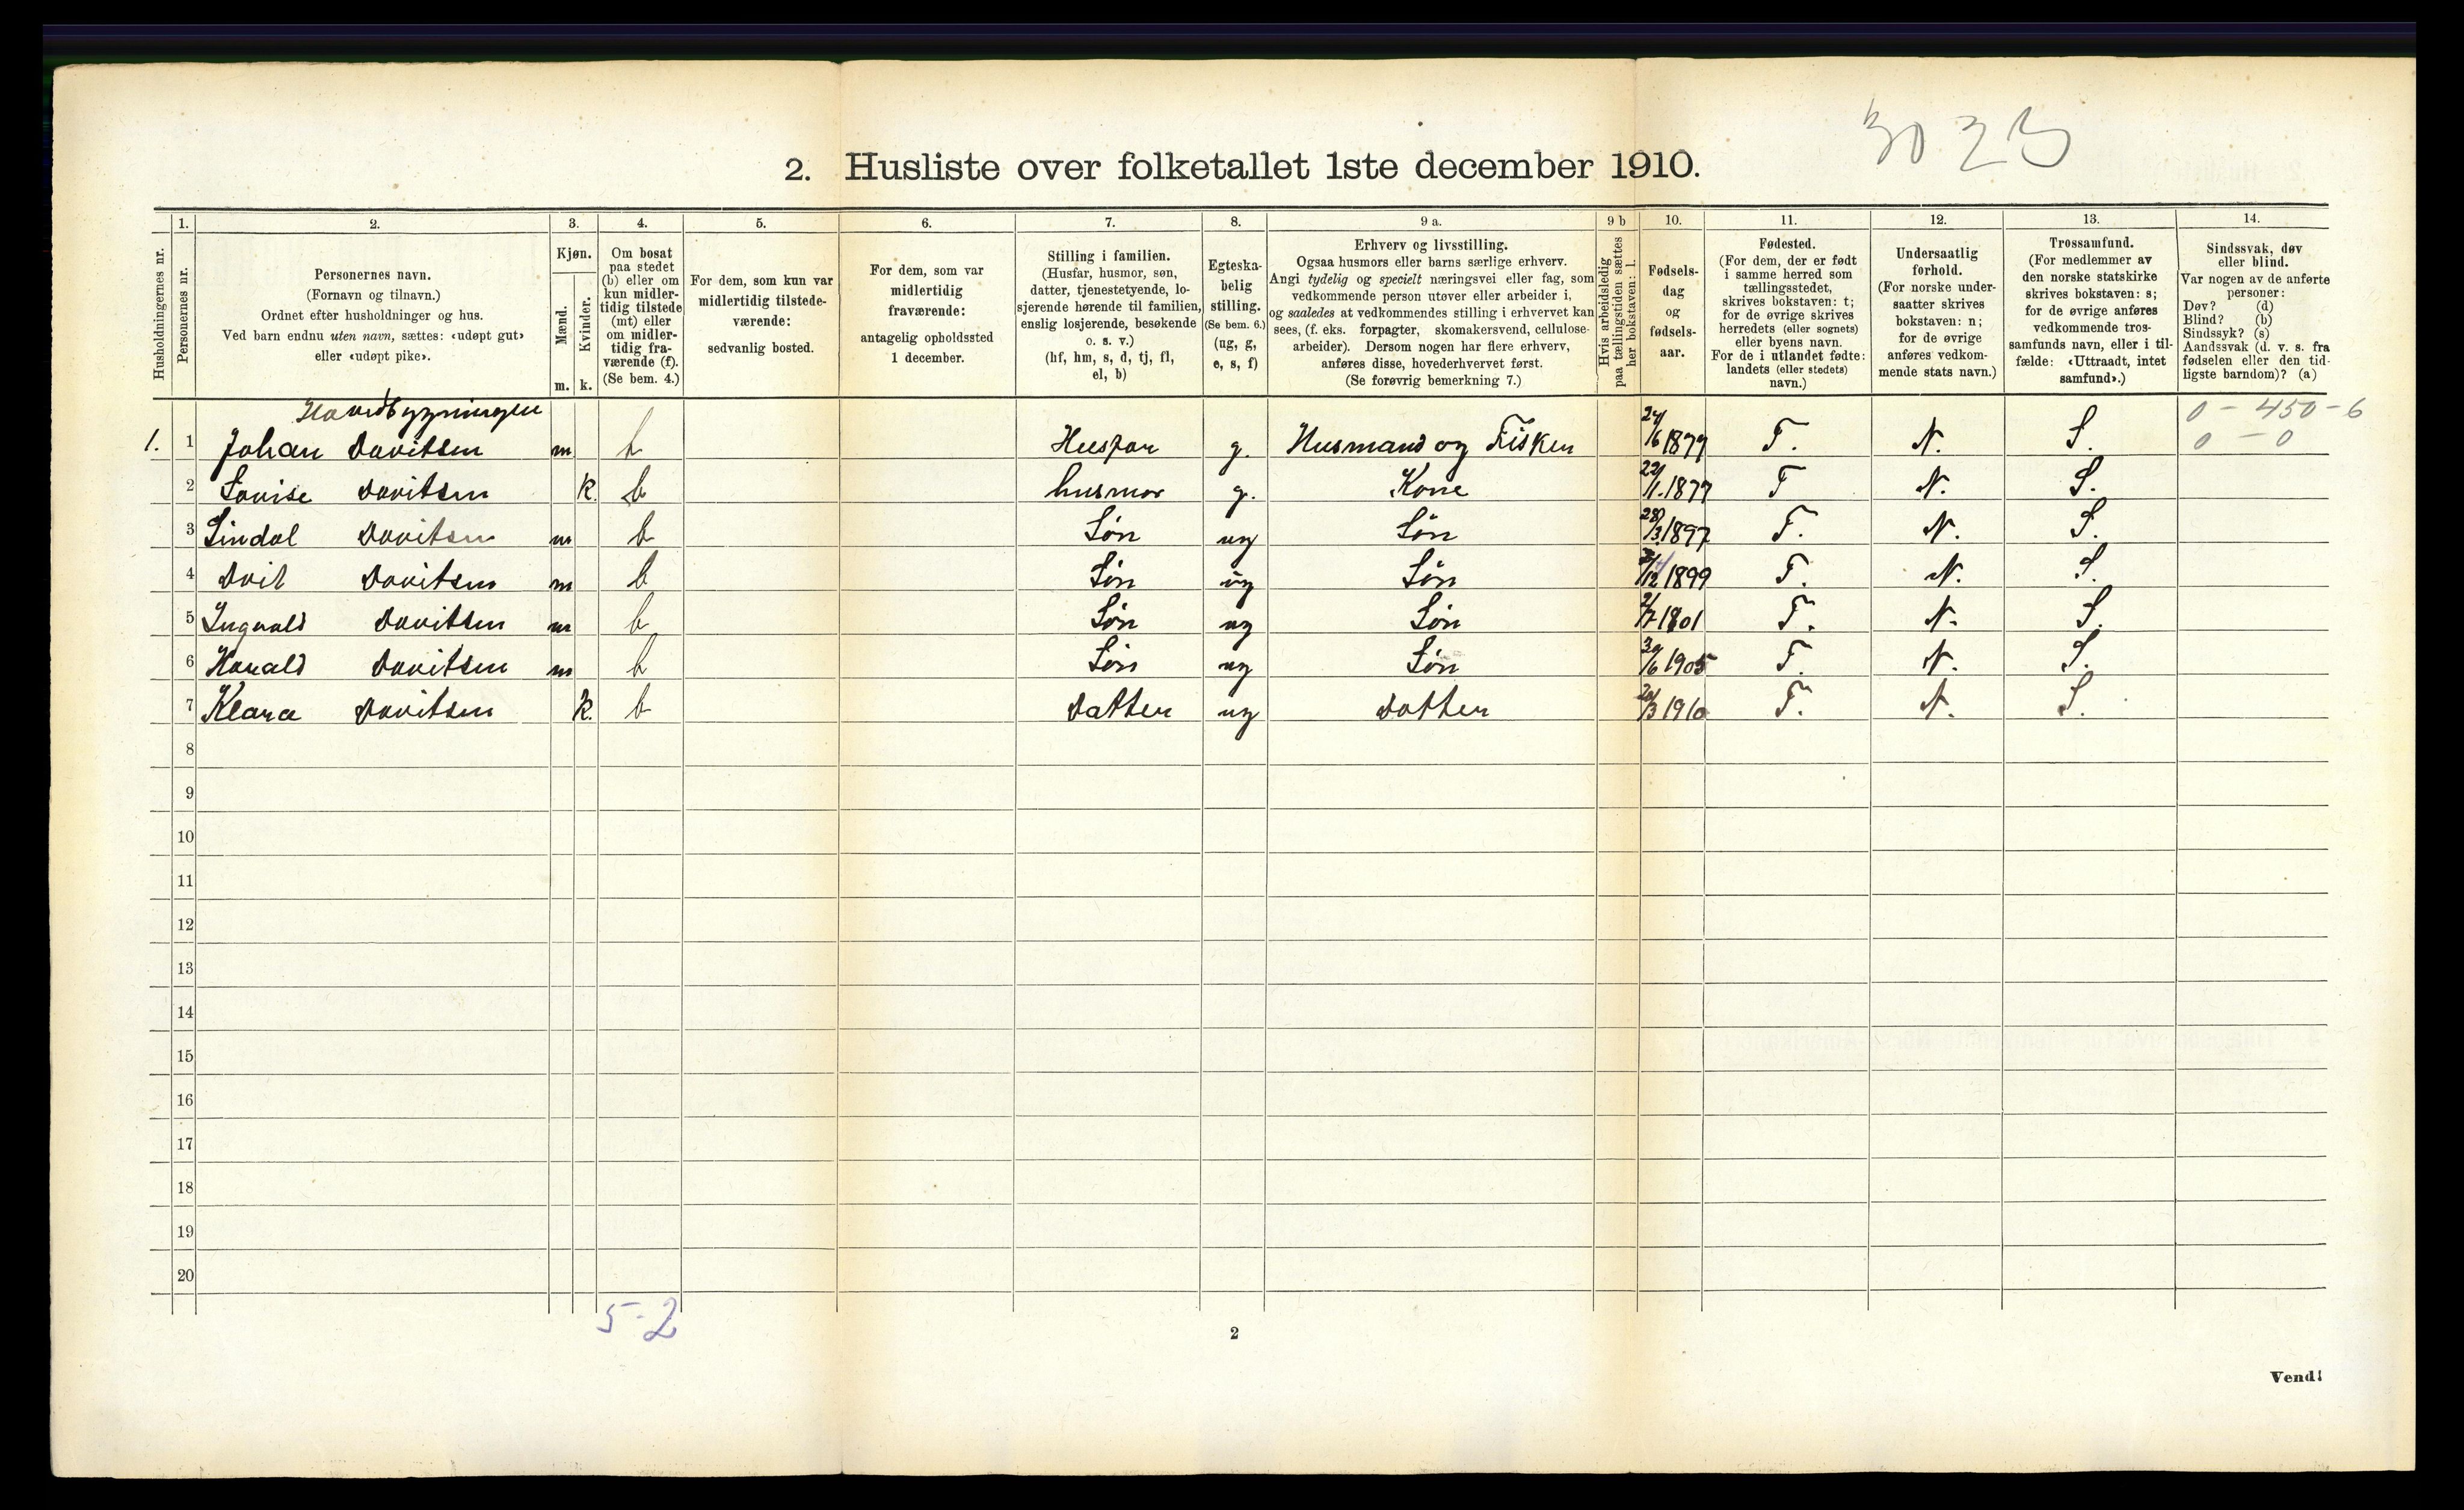 3023
2. Husliste over folketallet 1ste december 1910.
Husholdningernes nr.
1.
Personernes nr.
2.
Personernes navn.
(Fornavn og tilnavn.)
Ordnet efter husholdninger og hus.
Ved barn endnu uten navn, sættes: «udøpt gut»
eller «udøpt pike».
3.
Kjøn.
Mænd.
Kvinder.
m. k.
4.
Om bosat
paa stedet
(b) eller om
kun midler-
tidig tilstede
(mt) eller
om midler-
tidig fra-
værende (f).
(Se bem. 4.)
5.
For dem, som kun var
midlertidig tilstede-
værende:
sedvanlig bosted.
6.
For dem, som var
midlertidig
fraværende:
antagelig opholdssted
1 december.
7.
Stilling i familien.
(Husfar, husmor, søn,
datter, tjenestetyende, lo-
sjerende hørende til familien,
enslig losjerende, besøkende
o. s. v.)
(hf, hm, s, d, tj, fl,
el, b)
8.
Egteska-
belig
stilling.
(Se bem. 6.)
(ug, g,
e, s, f)
9 a.
Erhverv og livsstilling.
Ogsaa husmors eller barns særlige erhverv.
Angi tydelig og specielt næringsvei eller fag, som
vedkommende person utøver eller arbeider i,
og saaledes at vedkommendes stilling i erhvervet kan
sees, (f. eks. forpagter, skomakersvend, cellulose-
arbeider). Dersom nogen har flere erhverv,
anføres disse, hovederhvervet først.
(Se forøvrig bemerkning 7.)
9 b
Hvis arbeidsledig
paa tællingstiden sættes
her bokstaven: l.
10.
Fødsels-
dag
og
fødsels-
aar.
11.
Fødested.
(For dem, der er født
i samme herred som
tællingsstedet,
skrives bokstaven: t;
for de øvrige skrives
herredets (eller sognets)
eller byens navn.
For de i utlandet fødte:
landets (eller stedets)
navn.)
12.
Undersaatlig
forhold.
(For norske under-
saatter skrives
bokstaven: n;
for de øvrige
anføres vedkom-
mende stats navn.)
13.
Trossamfund.
(For medlemmer av
den norske statskirke
skrives bokstaven: s;
for de øvrige anføres
vedkommende tros-
samfunds navn, eller i til-
fælde: «Uttraadt, intet
samfund».)
14.
Sindssvak, døv
eller blind.
Var nogen av de anførte
personer:
Døv? (d)
Blind? (b)
Sindssyk? (s)
Aandssvak (d. v. s. fra
fødselen eller den tid-
ligste barndom)? (a)
Hovedbygningen 0 - 450 - 6
1. 1 Johan Davitsen m b Husfar g. Husmand og Fisker 24/6 1877 T. N. S. 0 - 0
2 Lovise Davitsen k b husmor g. Kone 22/1 1877 T N. S.
3 Lindal Davitsen m b Søn ug Søn 28/3 1897 T. N. S.
4 Davitsen m b Søn ug Søn /12 1899 T. N. S.
5 Ingvald Davitsen m b Søn ug Søn T. N. S.
6 Harald Davitsen m b Søn ug Søn 30/6 1905 T. N. S.
7 Klara Davitsen k b Datter ug Datter 20/3 1910 T. N. S.
8
9
10
11
12
13
14
15
16
17
18
19
20
5-2
2
Vend!